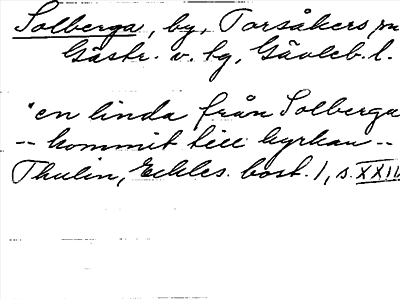 Solberga, by, Torsåkers sn
Gästr. v. tg, Gävleb. l.
"en linda från Solberga
-- kommit till kyrkan --
Thulin, Eckles. bost. 1, s. XXII